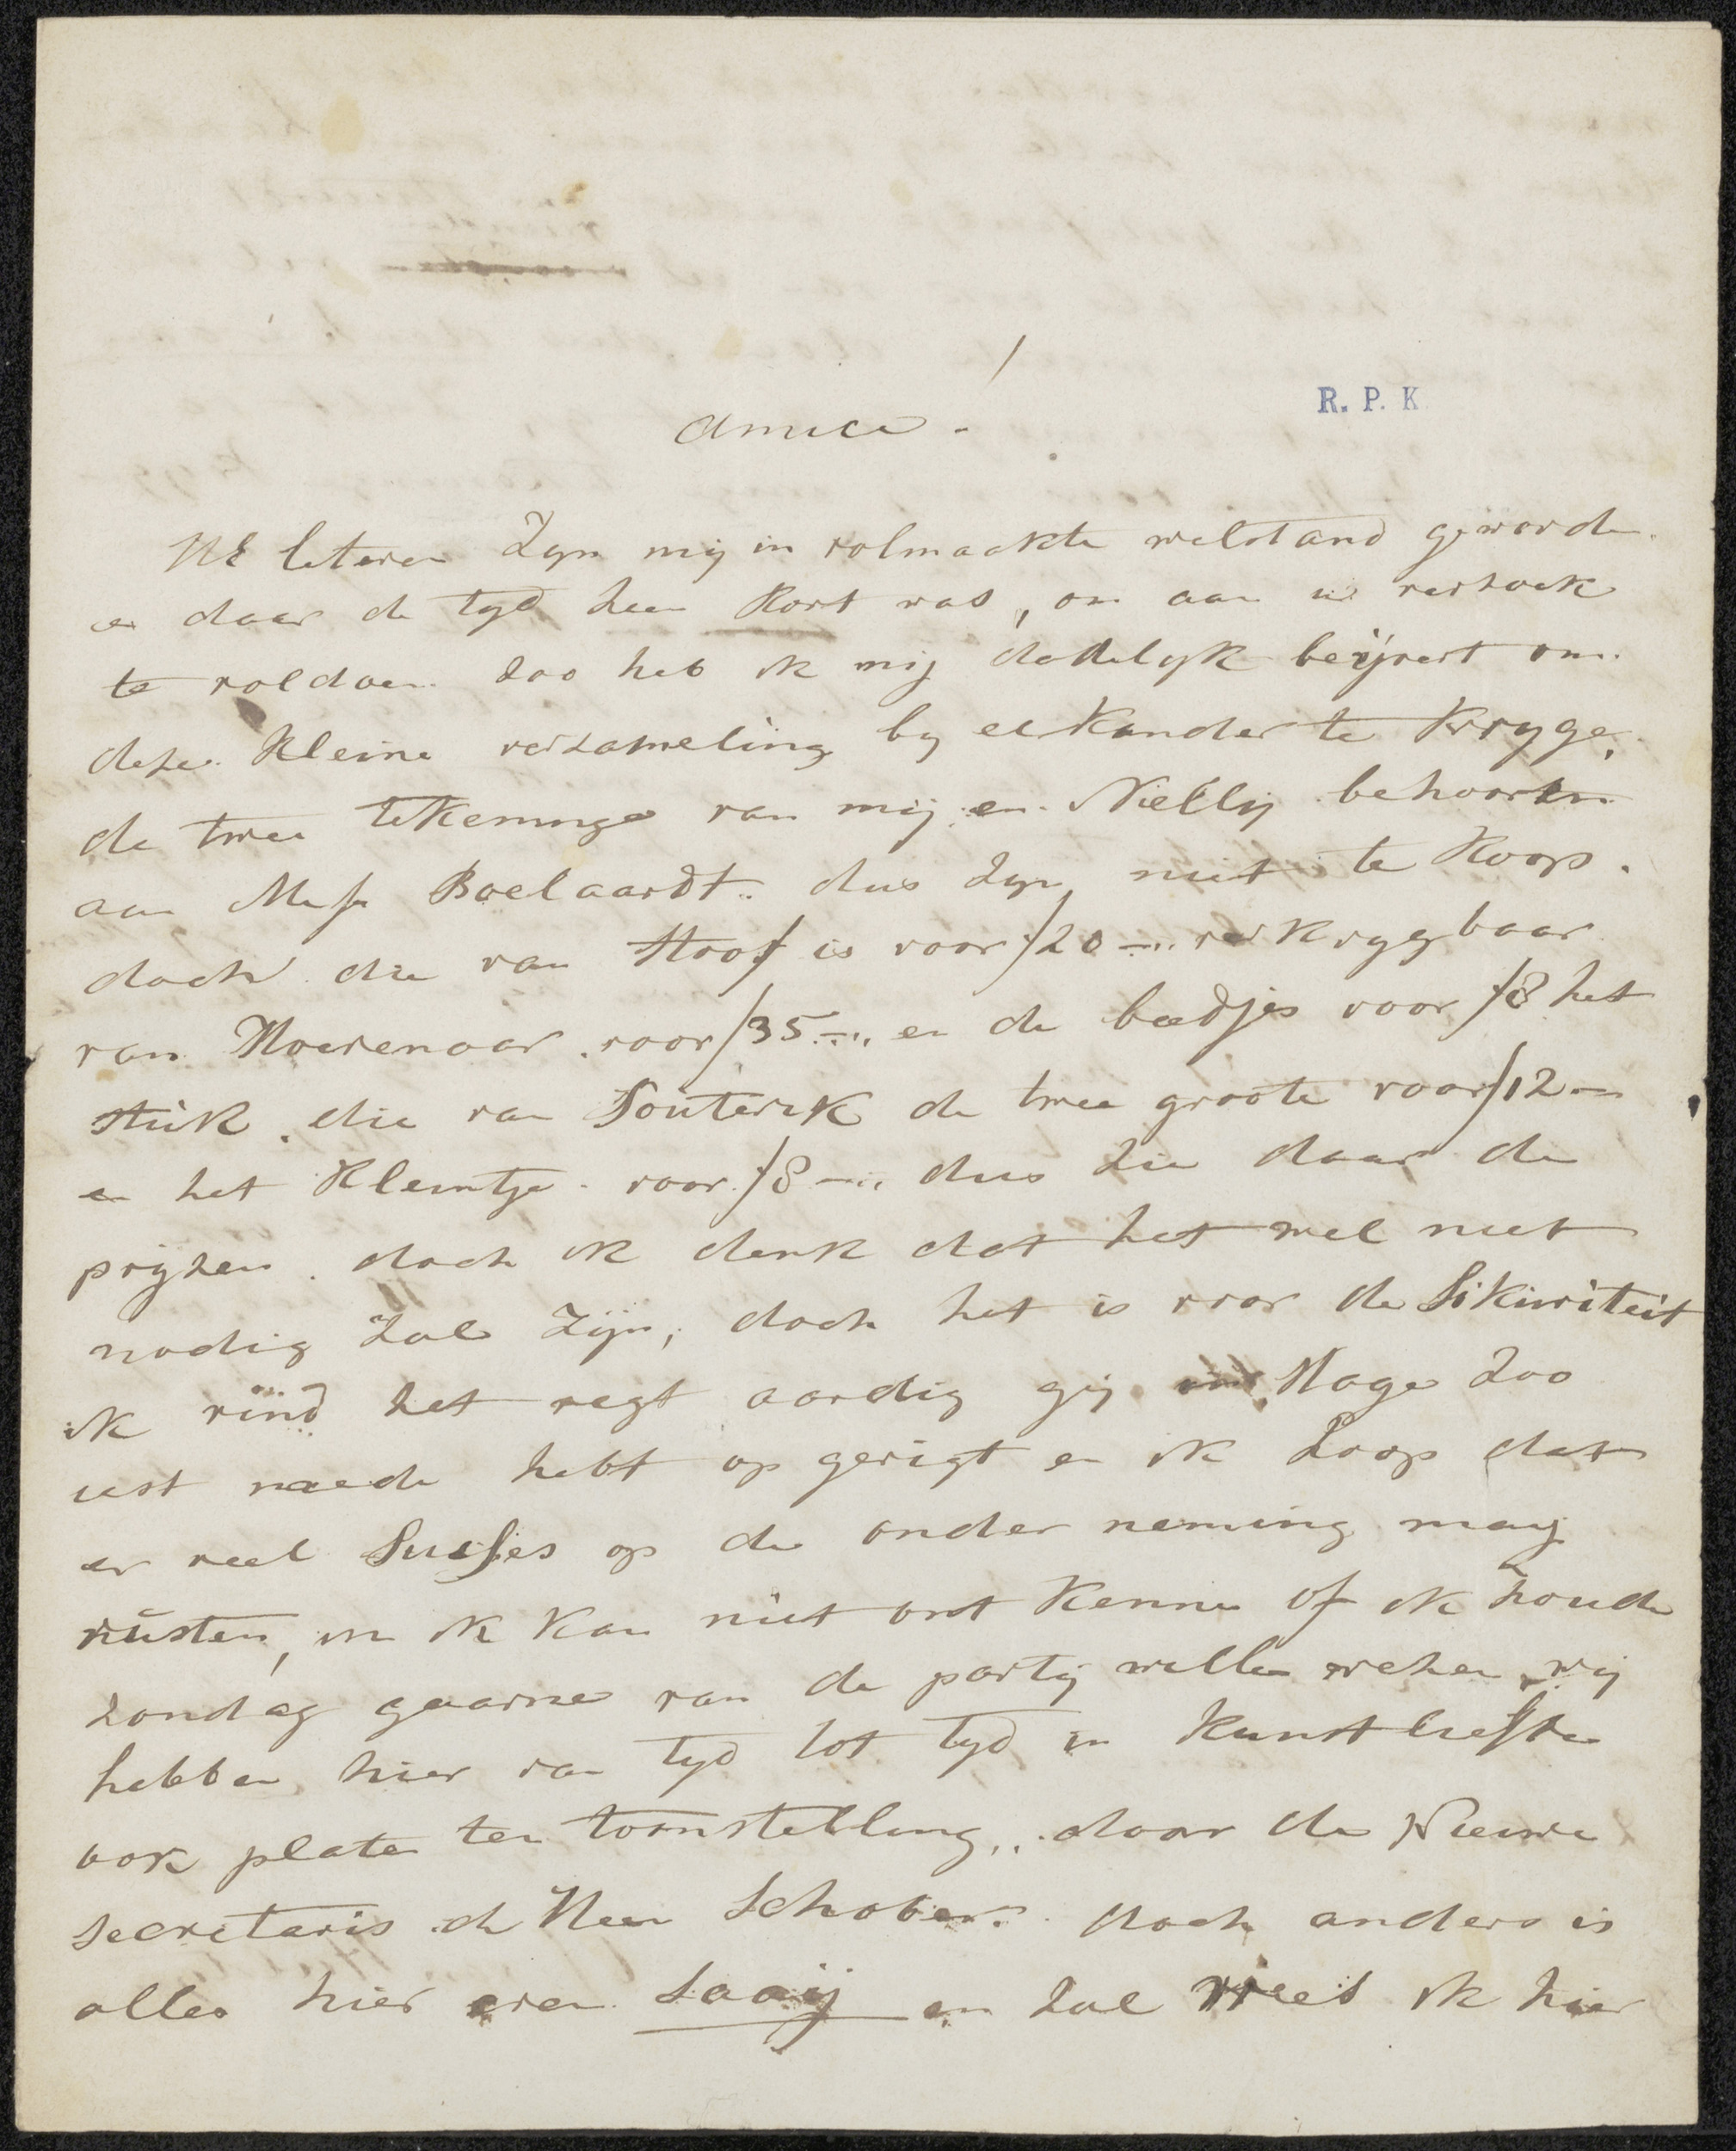 R. P. K
Amice !
UE leteren Zyn mij in volmaakte welstand geworde.
en daar de tyd heen Kort was, om aan uw verzoek
te voldoen. zoo heb ik mij dadelyk beijvert om.
deze Kleine verzameling by elkander te Kryge,
de twee tekeninge van mij en Niellij behooren
aan Mess Boelaardt. dus zyn niet te Koop.
doch die van Stoof is voor f20 —. verkrygbaar
van Moerenaar. voor f35 —., en de beedjes voor f8 het
stuk. die van Souterik de twee groote voor f12 —
en het Kleintje voor f8 —., dus zie daar de
pryzen. doch ik denk dat het wel niet
nodig zal zijn, doch het is voor de Sikuriteit
ik vind het regt aardig gij Hage zoo
iest meede hebt op gerigt en ik Loop dat
er veel Sucses op de onder neming mag
rusten, en ik kan niet ont Kenne of ik houde
zondag gaarne van de partij wille weezen, wij
hebben hier van tyd tot tyd in Kunstliefde
ook plate ten toonstelling,. door de Nieuwe
secretaris de Heer Schober. doch anders is
alles hier even Laaij en zal vrees ik hier